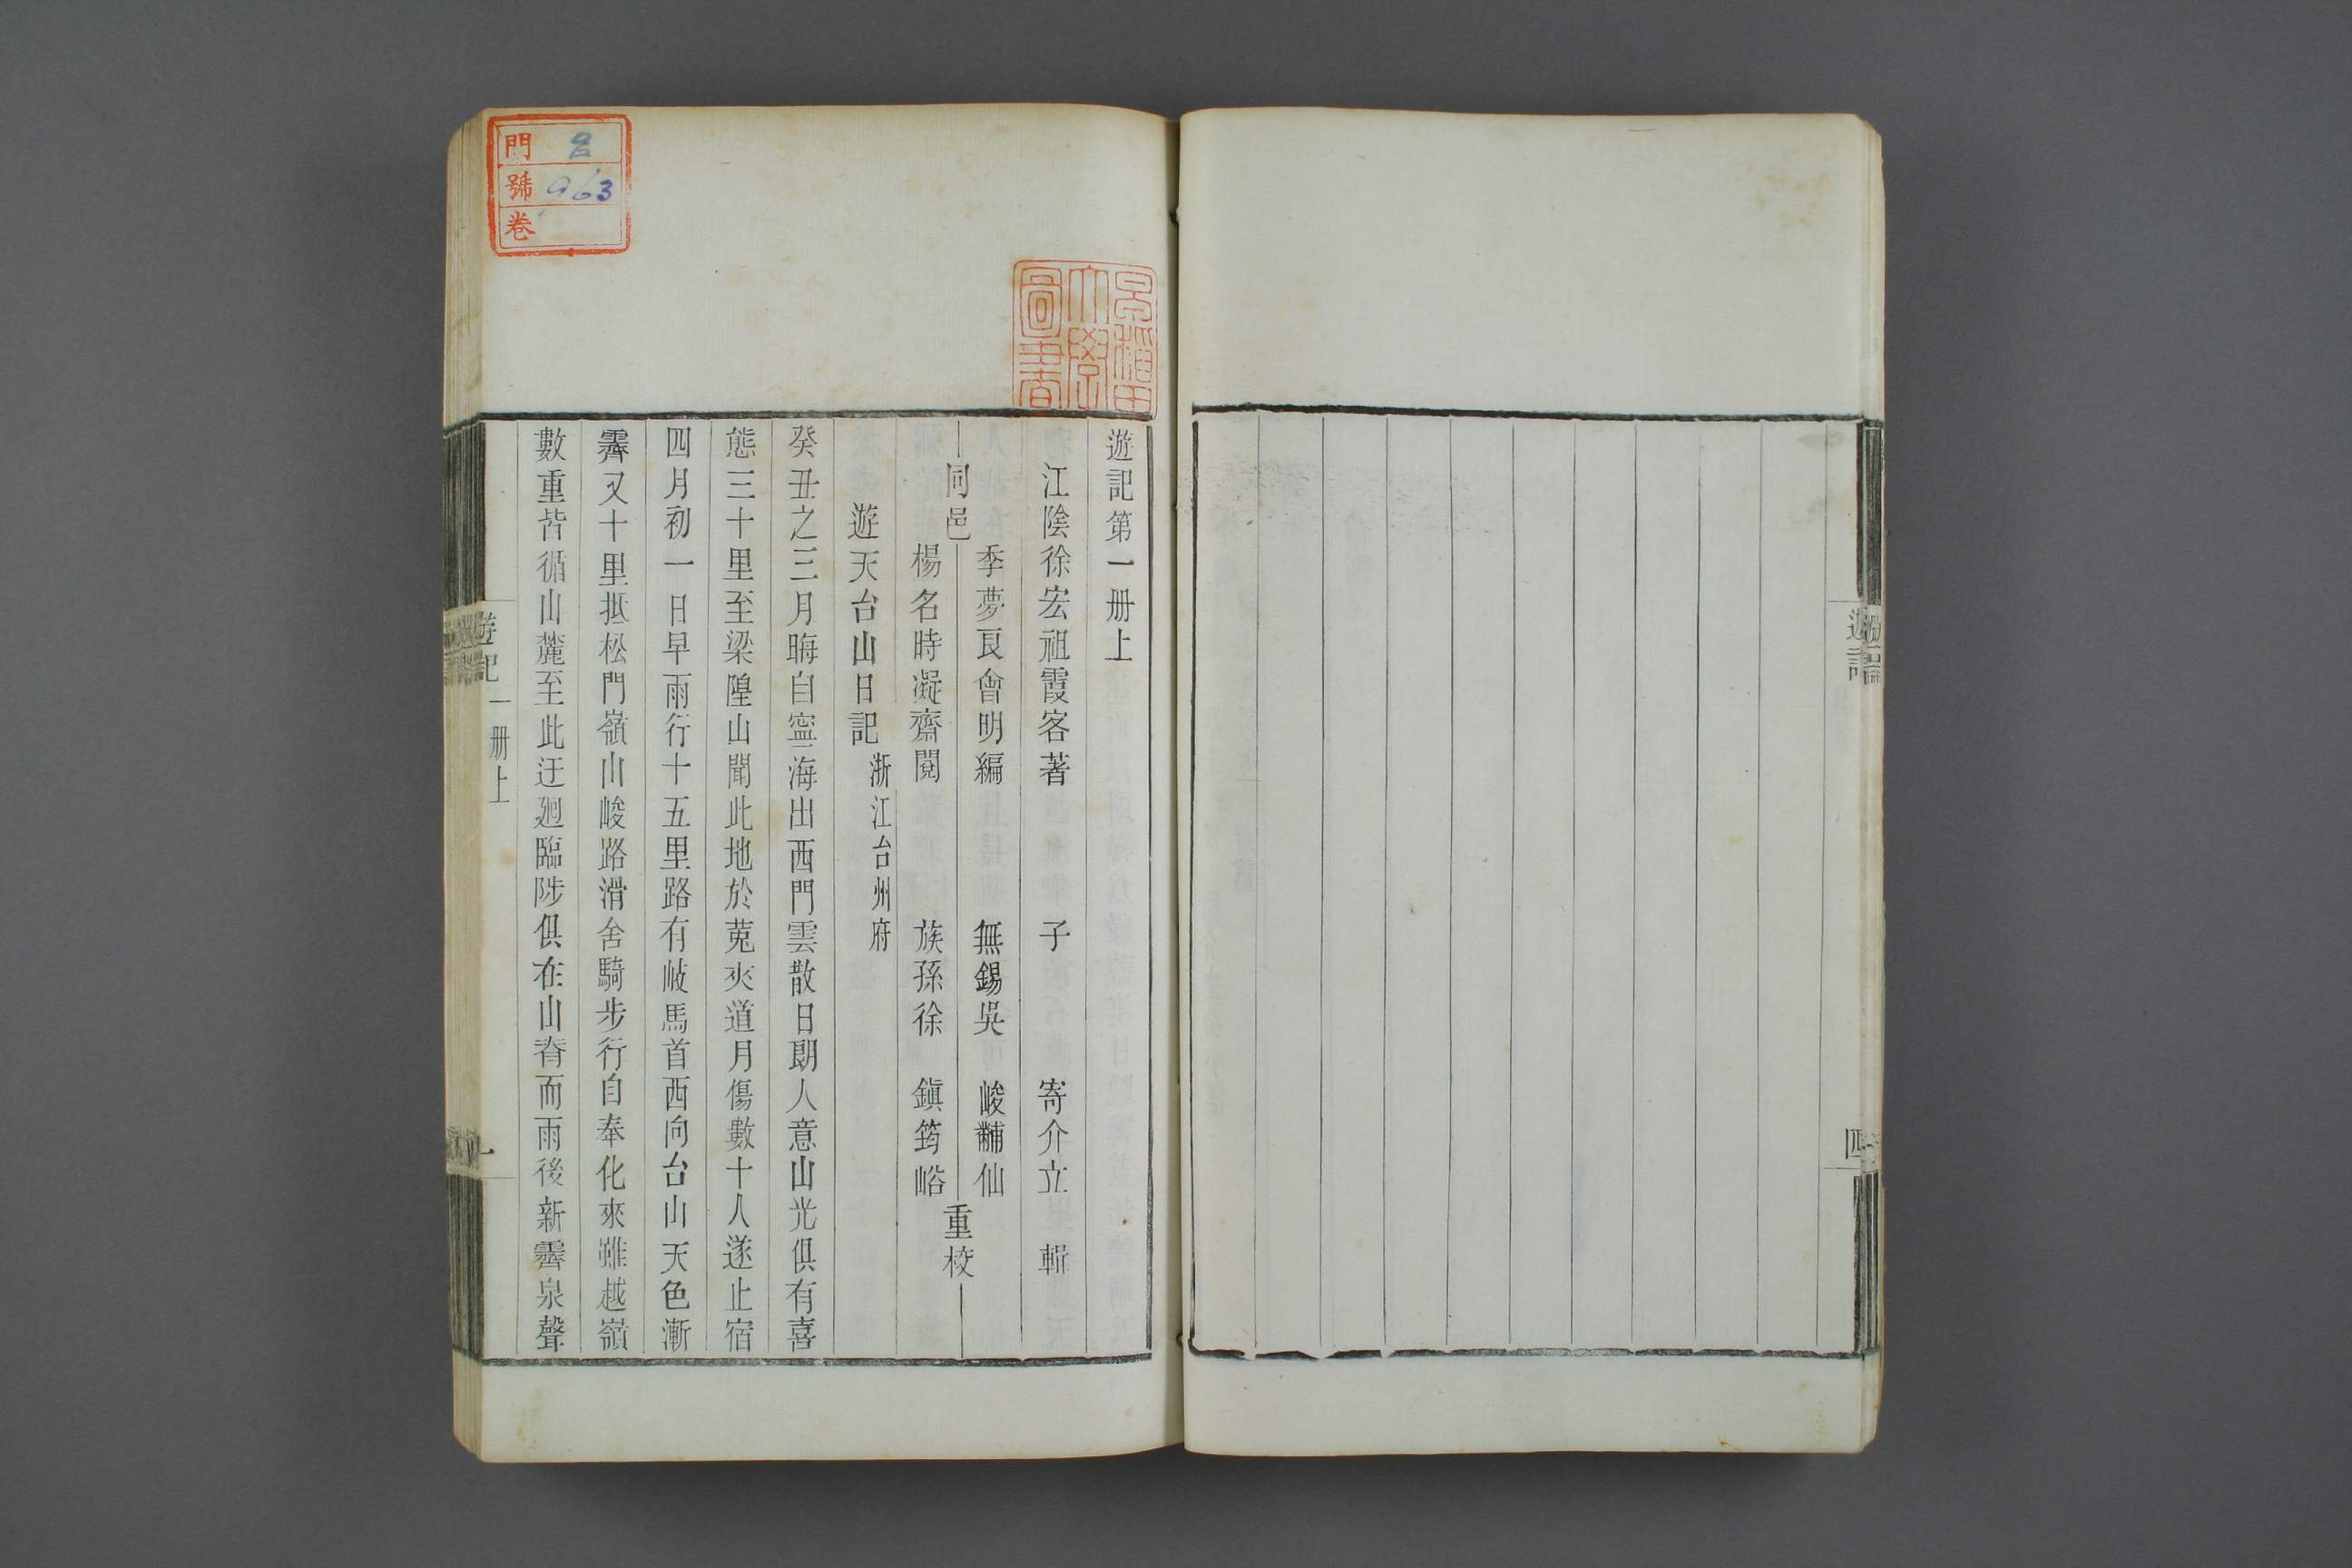 遊記
四
遊記第一册上
江陰徐宏祖霞客著 子 寄介立 輯
同邑
季夢良會明編 無錫吳 峻黼仙
楊名時凝齋閱 族孫徐 鎭筠峪
重校
遊天台山日記 浙江台州府
癸丑之三月晦自寧海出西門雲散日朗人意山光俱有喜
態三十里至梁隍山聞此地於菟夾道月傷數十人遂止宿
四月初一日早雨行十五里路有岐馬首西向台山天色漸
霽又十里抵松門嶺山峻路滑舍騎步行自奉化來雖越嶺
數重皆循山麓至此迂廻臨陟俱在山脊而雨後新霽泉聲
遊記 一册上
一
早稻田
大學
圖書
門 呂
號 963
卷